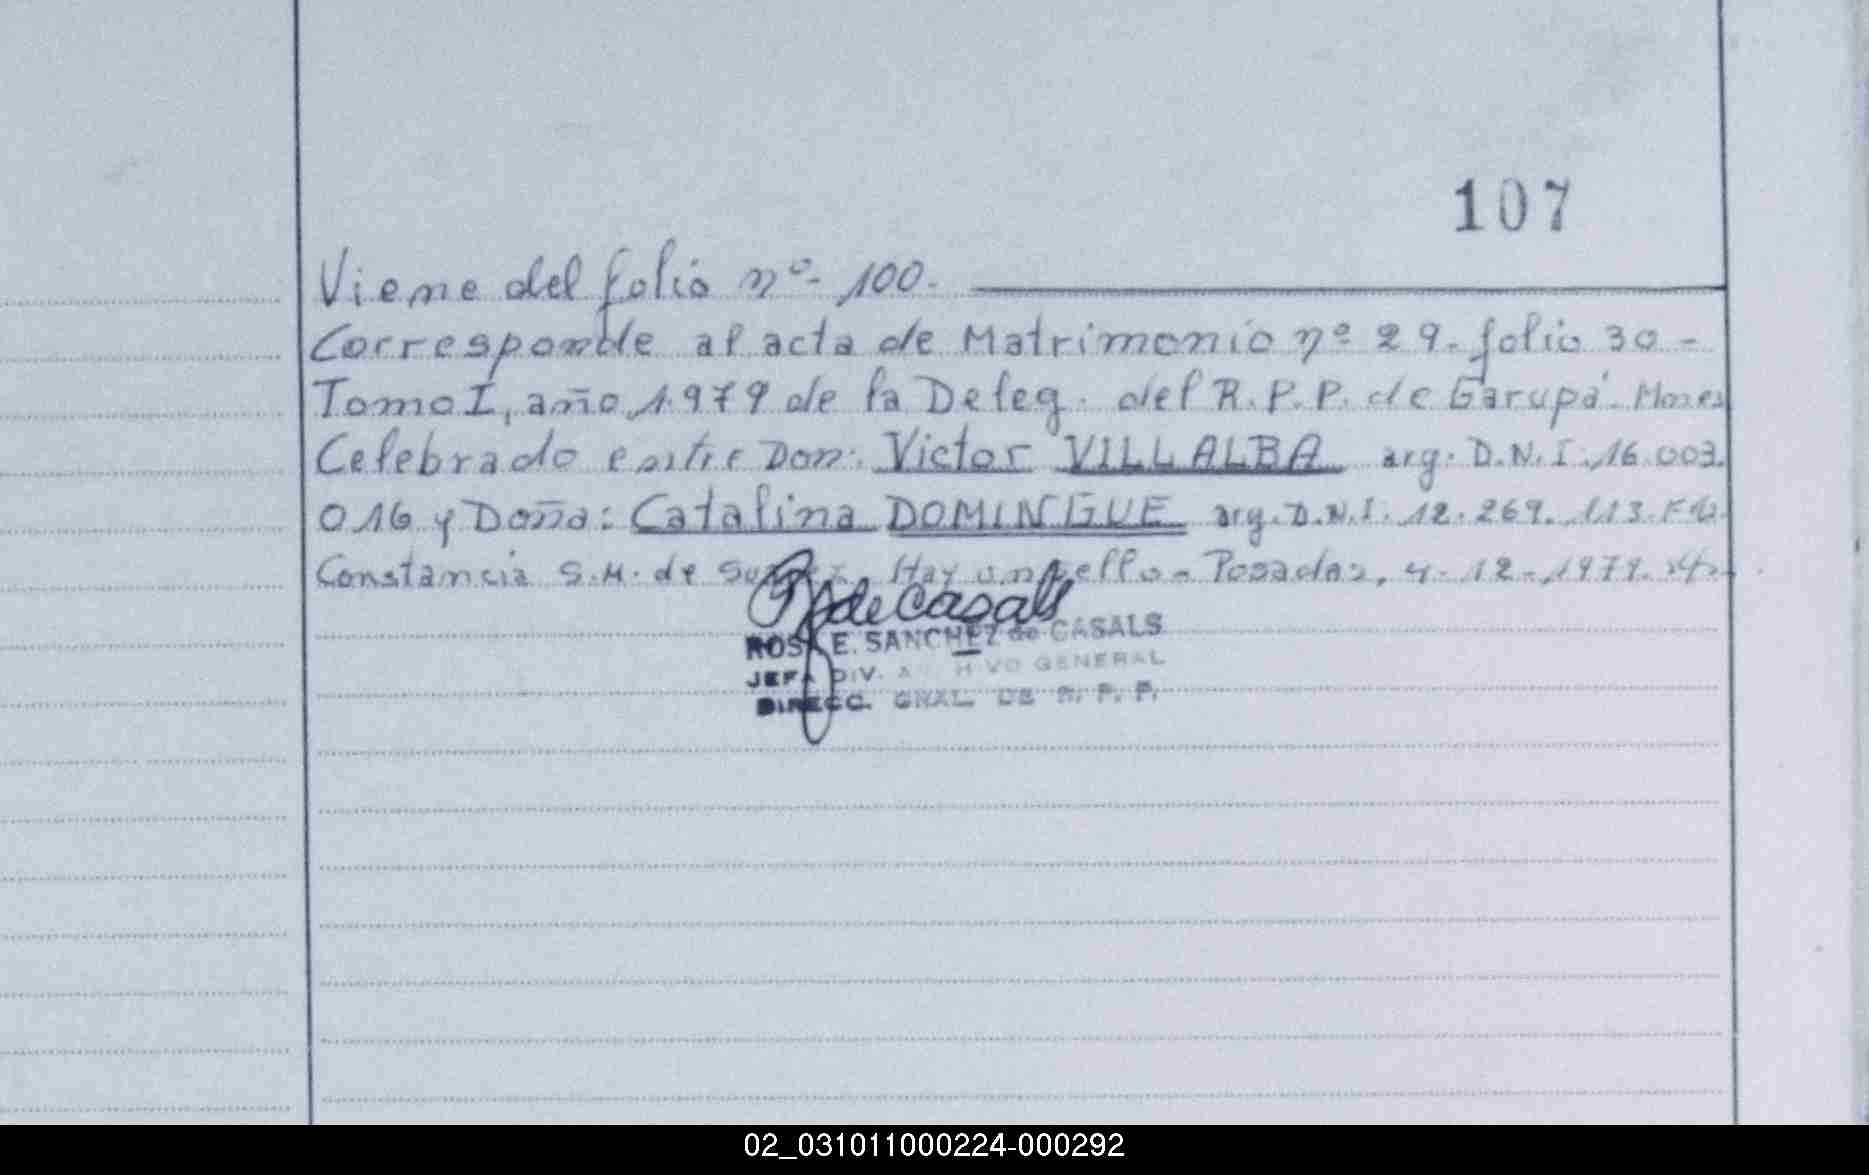 107
Viene del folio nº- 100.
Corresponde al acta de Matrimonio nº 29. folio 30 -
Tomo I, año 1.979 de la Deleg. del R.P.P. de Garupá.
Celebrado entre Don: Victor VILLALBA arg. D.N.I. 16.003.
016 y Doña: Catalina DOMINGUE arg. D.N.I. 12.269.113.
Constancia S.M. de Hay un sello - Posadas, 4-12-1979.
R de Casals
ROSA E. SANCHEZ de CASALS
JEFA DIV. ARCHIVO GENERAL
DIRECC. GRAL. DE R. P. P.
02_031011000224-000292